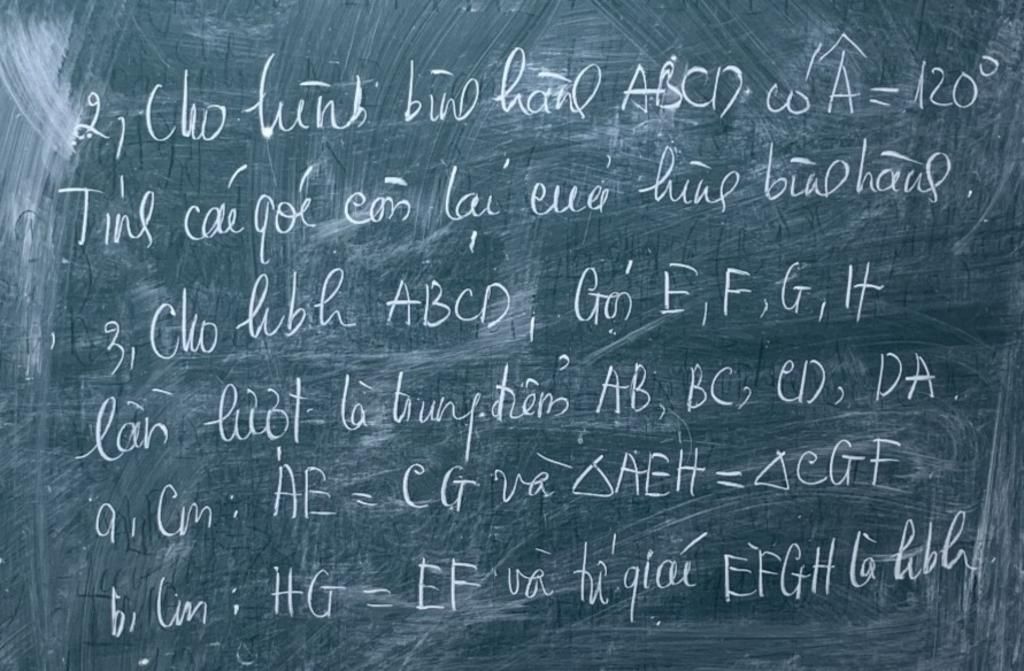 2, Cho hình bình hành ABCD có Â = 120°
Tính các góc còn lại của hình bình hành.
3, Cho hbh ABCD, Gọi E, F, G, H
lần lượt là trung điểm AB, BC, CD, DA.
a, Cm: AE = CG và △AEH = △CGF
b, Cm: HG = EF và tứ giác EFGH là hbh.